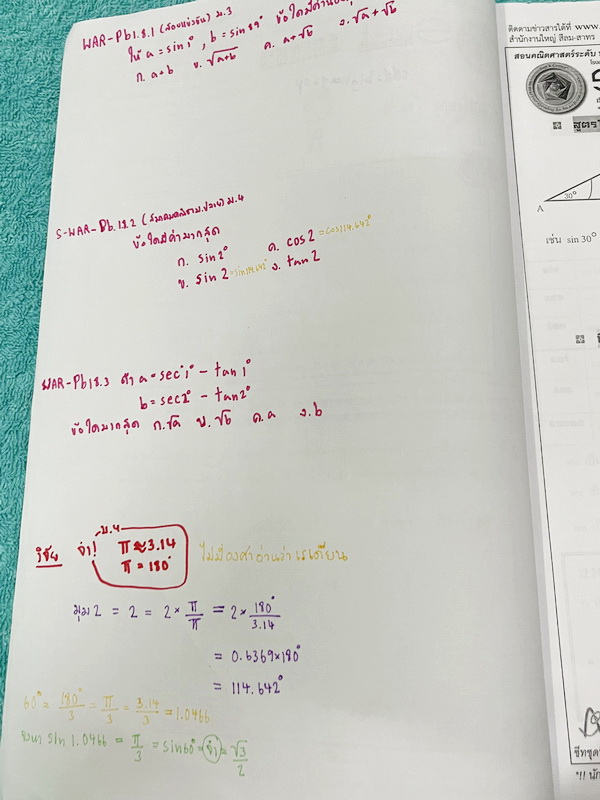 WAR-Pb1.8.1 (สอบแข่งขัน) ม.3
ให้ a = sin1°, b = sin89° ข้อใดมีค่า
ก. a+b ข. √a+b ค. a+√b ง. √a+√b
S-WAR-Pb.18.2 ม.4
ข้อใดมีค่ามากสุด
ก. sin2° ค. cos2 = cos114.642°
ข. sin2 = sin114.642° ง. tan2
WAR-Pb18.3 ถ้า a = sec1° - tan1°
b = sec2° - tan2°
ข้อใดมากสุด ก. √a ข. √b ค. a ง. b
ม.4
วิธีคิด จำ! π ≈ 3.14 ไม่มีองศาอ่านว่าเรเดียน
π = 180°
มุม 2 = 2 = 2 × π/π = 2 × 180°/3.14
= 0.6369 × 180°
= 114.642°
60° = 180°/3 = π/3 = 3.14/3 = 1.0466
sin 1.0466 = π/3 = sin60° = จำ = √3/2
ติดตามข่าวสารได้ที่ www.
สำนักงานใหญ่ สีลม-สาทร
สอนคณิตศาสตร์ระดับ
สูตร
30°
A
เช่น sin 30°
ชีทชุด
*!! นัก